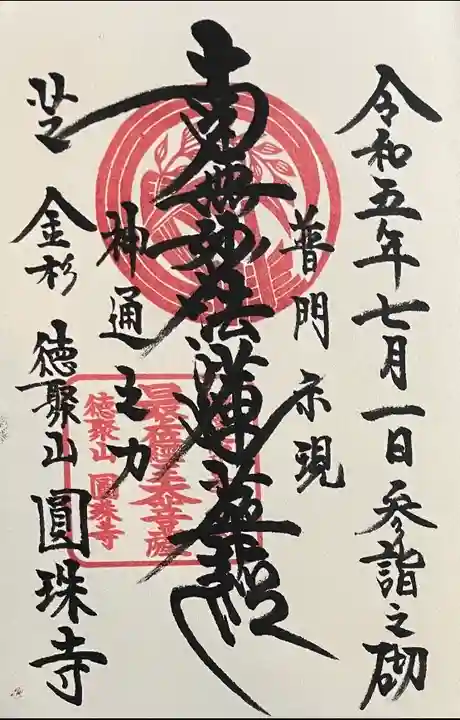 令和五年七月一日参詣之砌
普門示現
南無妙法蓮華経
神通之力
芝
金杉
徳聚山
圓珠寺
最在經王大菩薩
徳聚山
圓珠寺